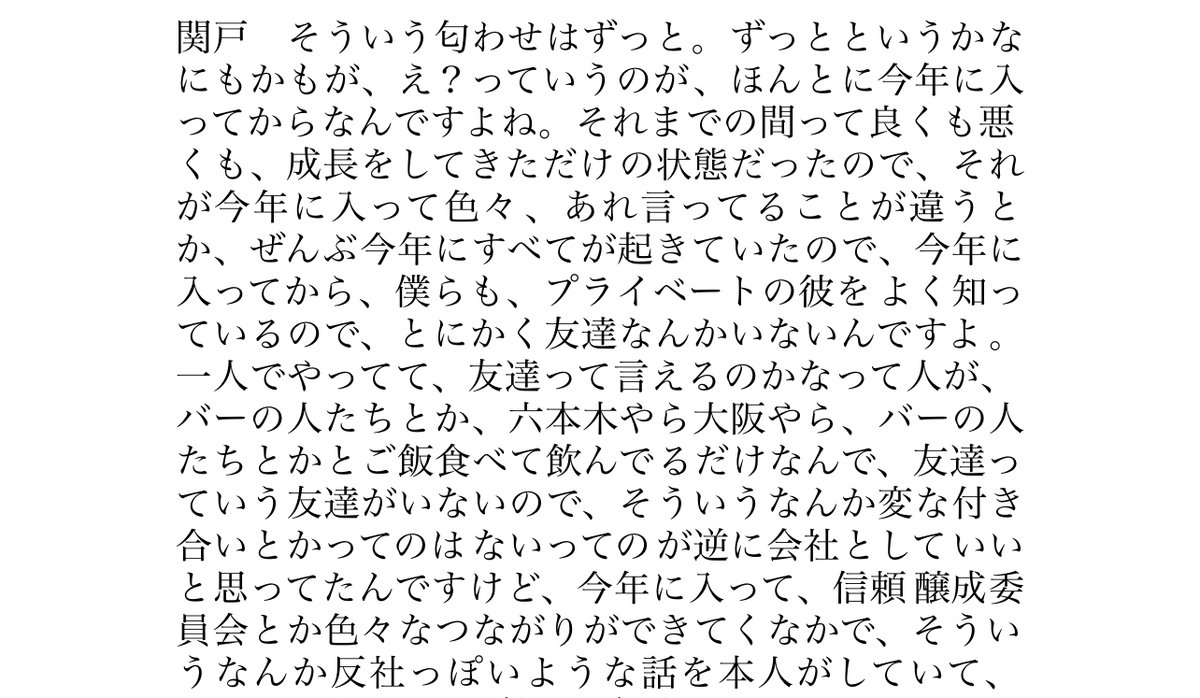 関戸　そういう匂わせはずっと。ずっとというかな
にもかもが、え？っていうのが、ほんとに今年に入
ってからなんですよね。それまでの間って良くも悪
くも、成長をしてきただけの状態だったので、それ
が今年に入って色々、あれ言ってることが違うと
か、ぜんぶ今年にすべてが起きていたので、今年に
入ってから、僕らも、プライベートの彼をよく知っ
ているので、とにかく友達なんかいないんですよ。
一人でやってて、友達って言えるのかなって人が、
バーの人たちとか、六本木やら大阪やら、バーの人
たちとかとご飯食べて飲んでるだけなんで、友達っ
ていう友達がいないので、そういうなんか変な付き
合いとかってのはないってのが逆に会社としていい
と思ってたんですけど、今年に入って、信頼醸成委
員会とか色々なつながりができてくなかで、そうい
うなんか反社っぽいような話を本人がしていて、